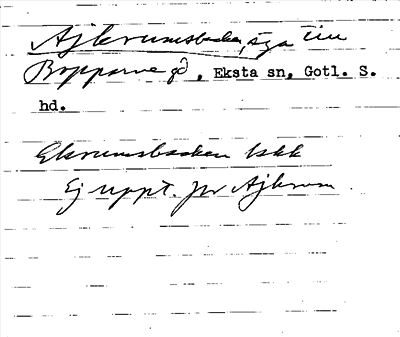 Ajkrumsbacken, äga till
Bopparve gd, Eksta sn, Gotl. S.
hd.
Ekrumsbacken Iskk
Ej uppt. jvr Ajkrum.